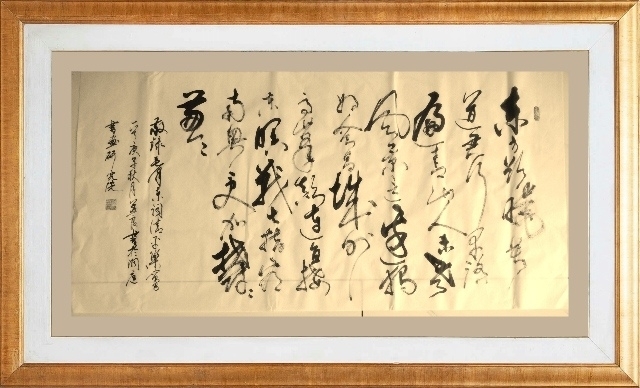 东方欲晓莫
道君行早踏
遍青山人未老
风景这边独
好会昌城外
高峰颠连直接
东溟战士指看
南粤更加郁郁
葱葱
毛泽东词清平乐会昌
庚子秋月书于
书画研究院